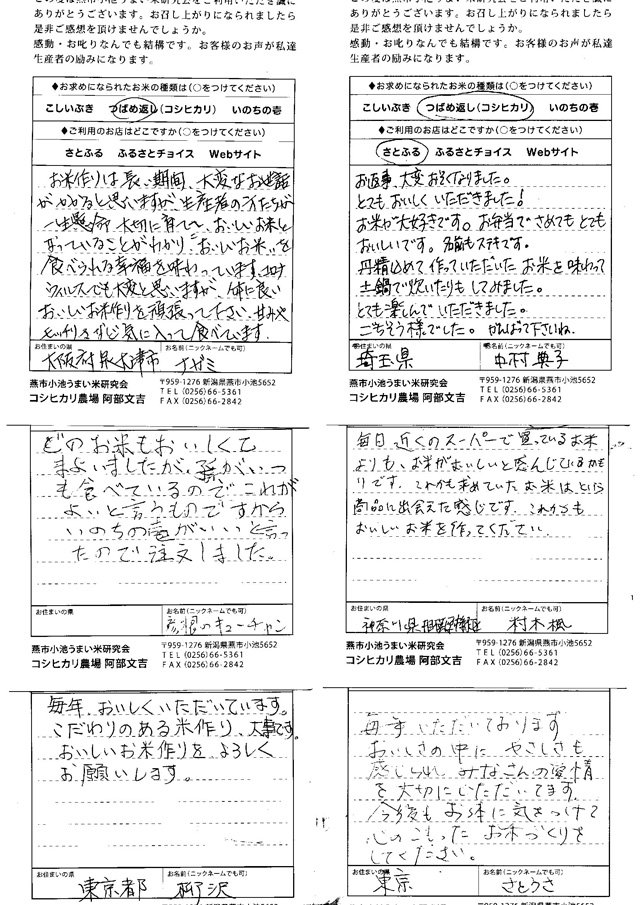 ありがとうございます。お召し上がりになられましたら
是非ご感想を頂けませんでしょうか。
感動・お叱りなんでも結構です。お客様のお声が私達
生産者の励みになります。
◆お求めになられたお米の種類は(○をつけてください)
こしいぶき つばめ返し(コシヒカリ) いのちの壱
◆ご利用のお店はどこですか(○をつけてください)
さとふる ふるさとチョイス Webサイト
お米作りは長い期間、大変なお世話
がかかると思いますが、生産者の方たちが
一生懸命 大切に育てて、おいしいお米と
なっていることがわかり"おいしいお米"を
食べられる幸福を味わっています。コロナ
ウィルスでも大変と思いますが、体に良い
おいしいお米作りを頑張って下さい。甘みや
もっちりさずし気に入って食べています。
お住まいの県 お名前(ニックネームでも可)
大阪府泉大津市 ナガミ
燕市小池うまい米研究会
コシヒカリ農場 阿部文吉
〒959-1276 新潟県燕市小池5652
TEL (0256)66-5361
FAX (0256)66-2842
ありがとうございます。お召し上がりになられましたら
是非ご感想を頂けませんでしょうか。
感動・お叱りなんでも結構です。お客様のお声が私達
生産者の励みになります。
◆お求めになられたお米の種類は(○をつけてください)
こしいぶき つばめ返し(コシヒカリ) いのちの壱
◆ご利用のお店はどこですか(○をつけてください)
さとふる ふるさとチョイス Webサイト
お返事、大変おそくなりました。
とてもおいしくいただきました!
お米が大好きです。お弁当でさめてもとても
おいしいです。名前もステキです。
丹精込めて作っていただいたお米を味わって
土鍋で炊いたりもしてみました。
とても楽しんでいただきました。
ごちそう様でした。がんばって下さいね。
お住まいの県 お名前(ニックネームでも可)
埼玉県 中村典子
燕市小池うまい米研究会
コシヒカリ農場 阿部文吉
〒959-1276 新潟県燕市小池5652
TEL (0256)66-5361
FAX (0256)66-2842
どのお米もおいしくて
まよいましたが、孫がいつ
も食べているのでこれが
よいと言うものですから
いのちの壱がいいと言っ
たので注文しました。
お住まいの県 お名前(ニックネームでも可)
彦根のキューチャン
燕市小池うまい米研究会
コシヒカリ農場 阿部文吉
〒959-1276 新潟県燕市小池5652
TEL (0256)66-5361
FAX (0256)66-2842
毎日近くのスーパーで買っているお米
よりも、お米がおいしいと感んじているかも
りです。これからも求めていたお米はという
商品に出会えた感じです。これからも
おいしいお米を作ってください。
お住まいの県 お名前(ニックネームでも可)
神奈川県相模原市緑区 村木楓
燕市小池うまい米研究会
コシヒカリ農場 阿部文吉
〒959-1276 新潟県燕市小池5652
TEL (0256)66-5361
FAX (0256)66-2842
毎年、おいしくいただいています。
こだわりのある米作り、大事です。
おいしいお米作りをよろしく
お願いします。
お住まいの県 お名前(ニックネームでも可)
東京都 柳沢
毎年いただいております
おいしさの中に やさしさも
感じられ みなさんの愛情
を大切にいただいてます。
今後もお体に気をつけて
心のこもったお米づくりを
してください。
お住まいの県 お名前(ニックネームでも可)
東京 さとうさ